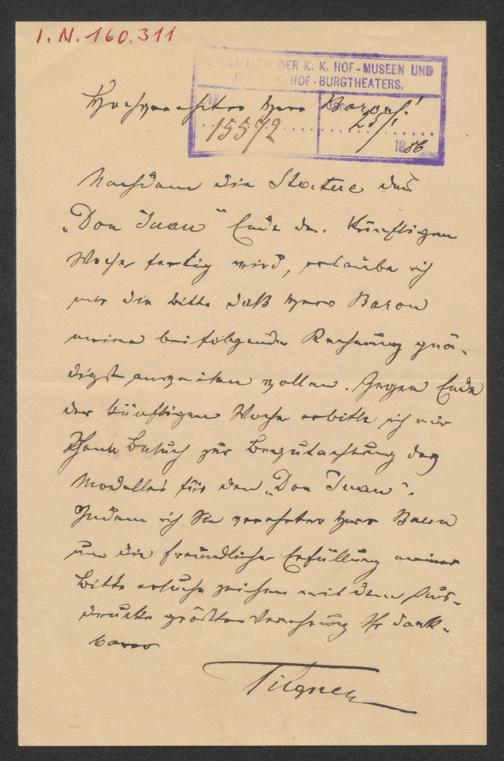 I.N. 160.311
DER K. K. HOF-MUSEEN UND
HOF-BURGTHEATERS.
15592 25/1
1886
Hochverehrter Herr Baron!
Nachdem die Statue des
„Don Juan“ Ende der künftigen
Woche fertig wird, erlaube ich
mir die bitte daß Herr Baron
meine beifolgende Rechnung gnä-
digst anweisen wollen. Gegen Ende
der künftigen Woche erbitte ich mir
Ihren Besuch zur Begutachtung des
Modelles für den „Don Juan“.
Indem ich Sie verehrter Herr Baron
um die freundliche Erfüllung meiner
Bitte ersuche zeichne mit dem Aus-
drucke größter Verehrung Ihr dank-
barer
Tilgner